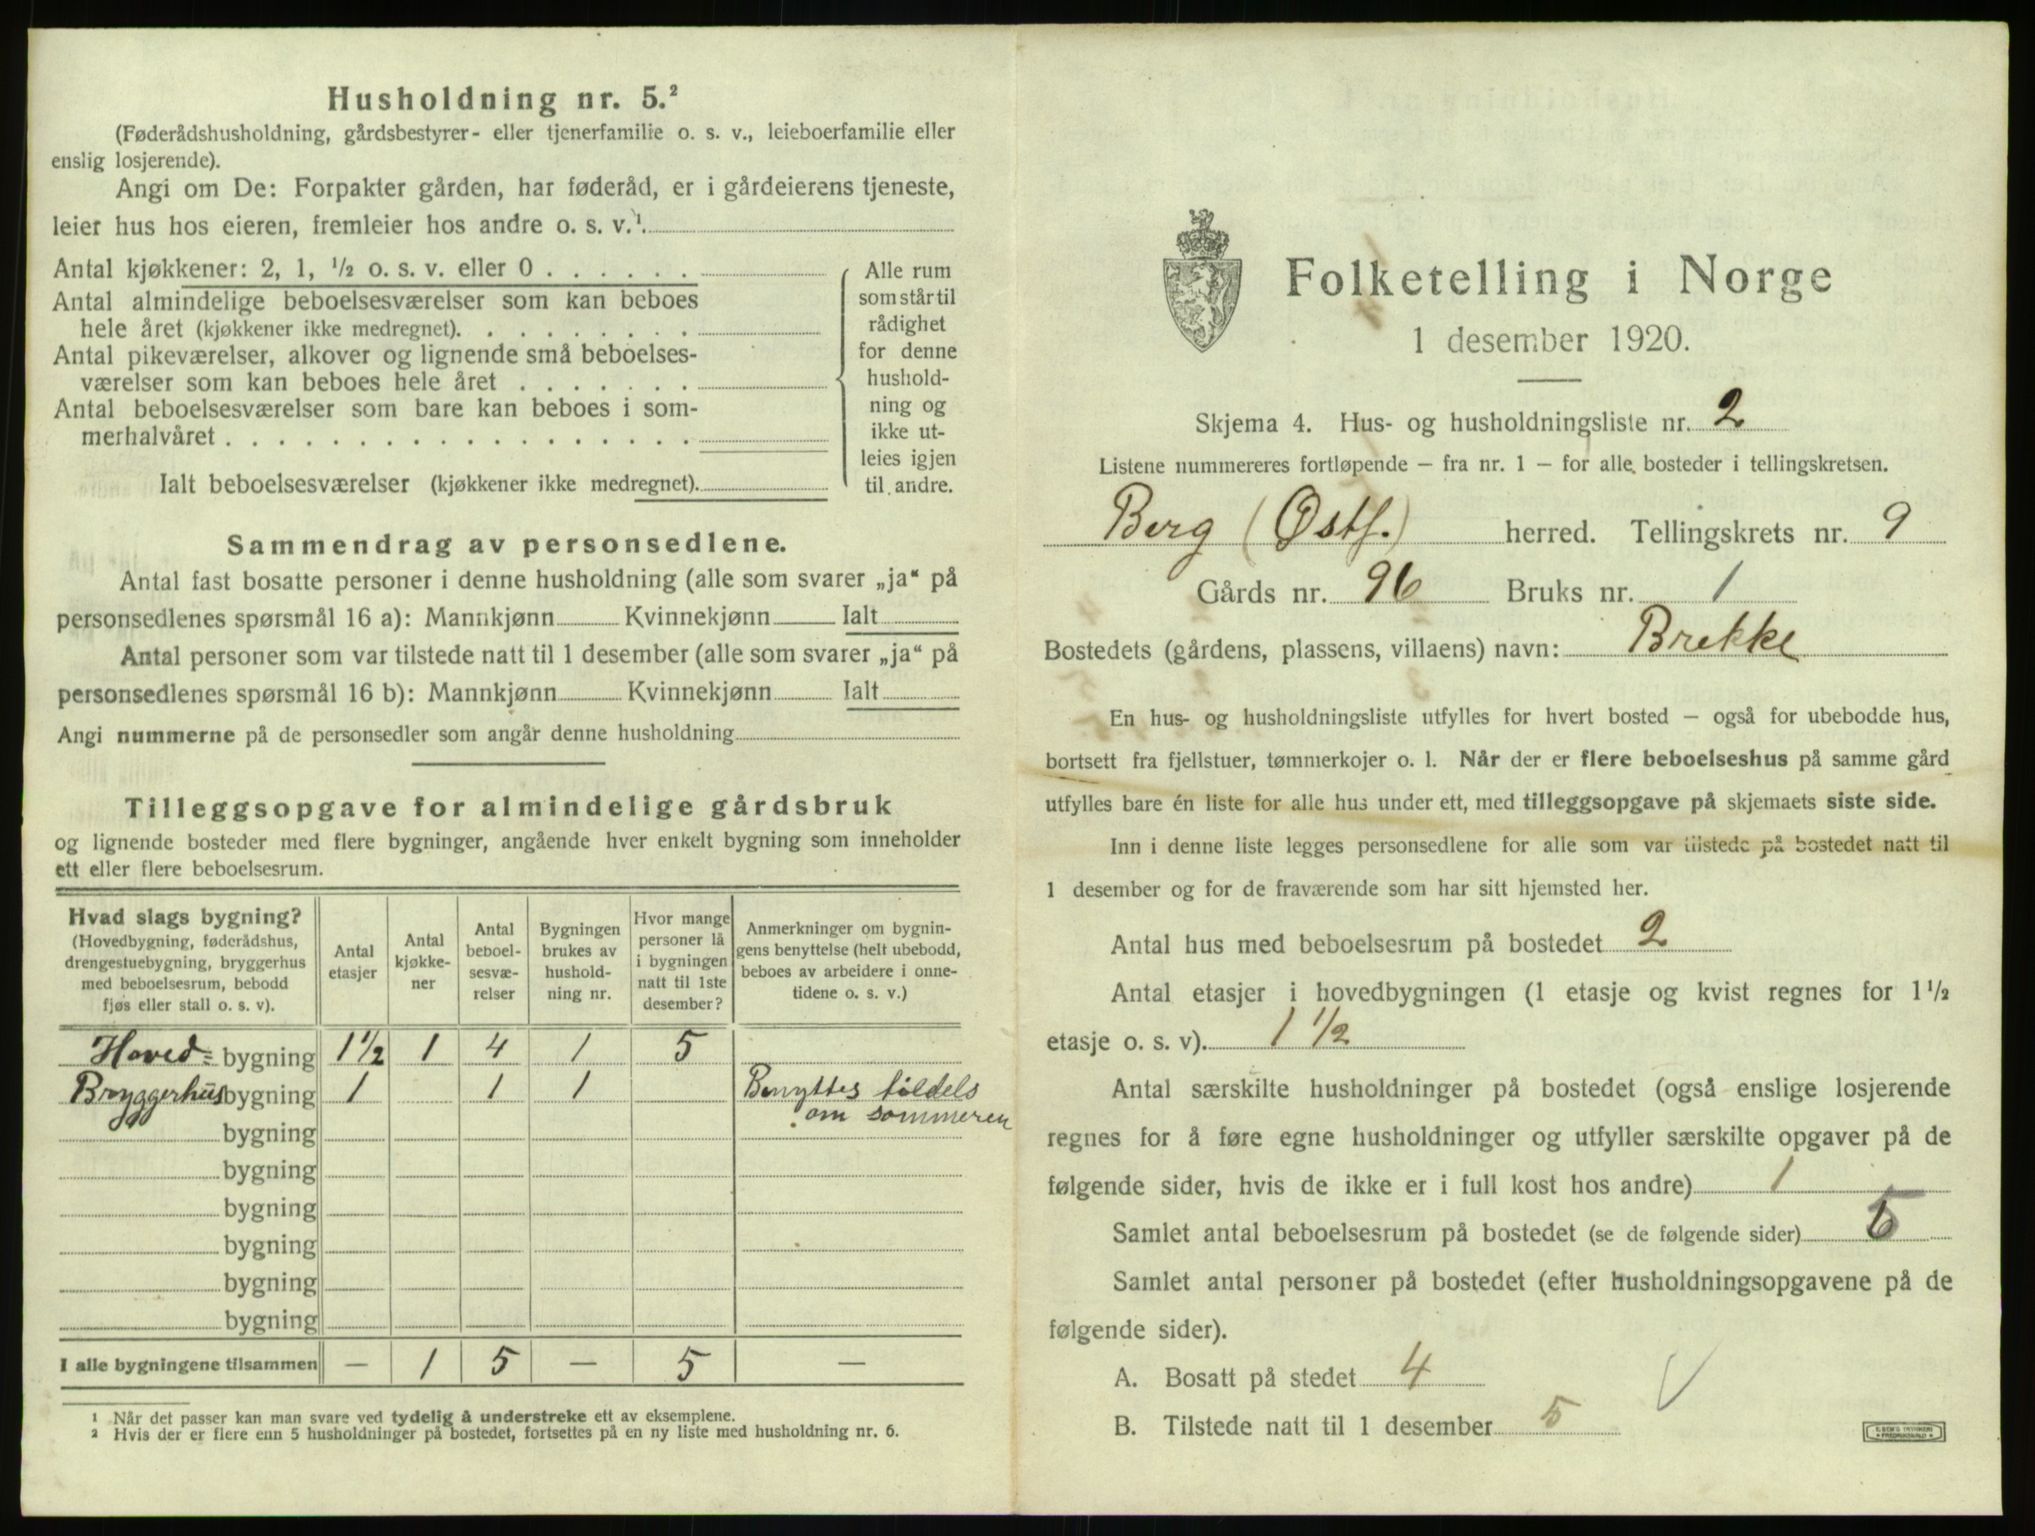 Husholdning nr. 5.²
(Føderådshusholdning, gårdsbestyrer- eller tjenerfamilie o. s. v., leieboerfamilie eller
enslig losjerende).
Angi om De: Forpakter gården, har føderåd, er i gårdeierens tjeneste,
leier hus hos eieren, fremleier hos andre o. s. v.¹
Antal kjøkkener: 2, 1, ½ o. s. v. eller 0 . . . . . .
Antal almindelige beboelsesværelser som kan beboes
hele året (kjøkkener ikke medregnet). . . . . . . . .
Antal pikeværelser, alkover og lignende små beboelses-
værelser som kan beboes hele året . . . . . . .
Antal beboelsesværelser som bare kan beboes i som-
merhalvåret . . . . . . . . . . . . . . . . . .
Ialt beboelsesværelser (kjøkkener ikke medregnet).
Alle rum
som står til
rådighet
for denne
hushold-
ning og
ikke ut-
leies igjen
til andre.
Sammendrag av personsedlene.
Antal fast bosatte personer i denne husholdning (alle som svarer „ja“ på
personsedlenes spørsmål 16 a): Mannkjønn Kvinnekjønn Ialt
Antal personer som var tilstede natt til 1 desember (alle som svarer „ja“ på
personsedlenes spørsmål 16 b): Mannkjønn Kvinnekjønn Ialt
Angi nummerne på de personsedler som angår denne husholdning
Tilleggsopgave for almindelige gårdsbruk
og lignende bosteder med flere bygninger, angående hver enkelt bygning som inneholder
ett eller flere beboelsesrum.
Hvad slags bygning?
(Hovedbygning, føderådshus,
drengestuebygning, bryggerhus
med beboelsesrum, bebodd
fjøs eller stall o. s. v).
Antal
etasjer
Antal
kjøkke-
ner
Antal
beboel-
sesvæ-
relser
Bygningen
brukes av
hushold-
ning nr.
Hvor mange
personer lå
i bygningen
natt til 1ste
desember?
Anmerkninger om bygnin-
gens benyttelse (helt ubebodd,
beboes av arbeidere i onne-
tidene o. s. v.)
Hoved= bygning 1½ 1 4 1 5
Bryggerhus bygning 1 1 1 Benyttes tildels
om sommeren
bygning
bygning
bygning
bygning
bygning
bygning
I alle bygningene tilsammen — 1 5 — 5 —
¹ Når det passer kan man svare ved tydelig å understreke ett av eksemplene.
² Hvis der er flere enn 5 husholdninger på bostedet, fortsettes på en ny liste med husholdning nr. 6.
Folketelling i Norge
1 desember 1920.
Skjema 4. Hus- og husholdningsliste nr. 2
Listene nummereres fortløpende – fra nr. 1 – for alle bosteder i tellingskretsen.
Berg (Østf.) herred. Tellingskrets nr. 9
Gårds nr. 96 Bruks nr. 1
Bostedets (gårdens, plassens, villaens) navn: Brekke
En hus- og husholdningsliste utfylles for hvert bosted – også for ubebodde hus,
bortsett fra fjellstuer, tømmerkojer o. l. Når der er flere beboelseshus på samme gård
utfylles bare én liste for alle hus under ett, med tilleggsopgave på skjemaets siste side.
Inn i denne liste legges personsedlene for alle som var tilstede på bostedet natt til
1 desember og for de fraværende som har sitt hjemsted her.
Antal hus med beboelsesrum på bostedet 2
Antal etasjer i hovedbygningen (1 etasje og kvist regnes for 1½
etasje o. s. v). 1 ½
Antal særskilte husholdninger på bostedet (også enslige losjerende
regnes for å føre egne husholdninger og utfyller særskilte opgaver på de
følgende sider, hvis de ikke er i full kost hos andre) 1
Samlet antal beboelsesrum på bostedet (se de følgende sider)
Samlet antal personer på bostedet (efter husholdningsopgavene på de
følgende sider).
A. Bosatt på stedet 4
B. Tilstede natt til 1 desember 5